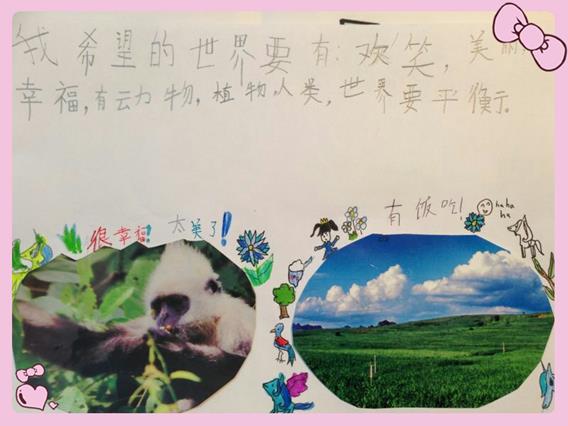 我希望的世界要有:欢笑,美丽
幸福,有动物,植物,人类,世界要平衡。
很幸福! 太美了!
有饭吃!
haha
ha